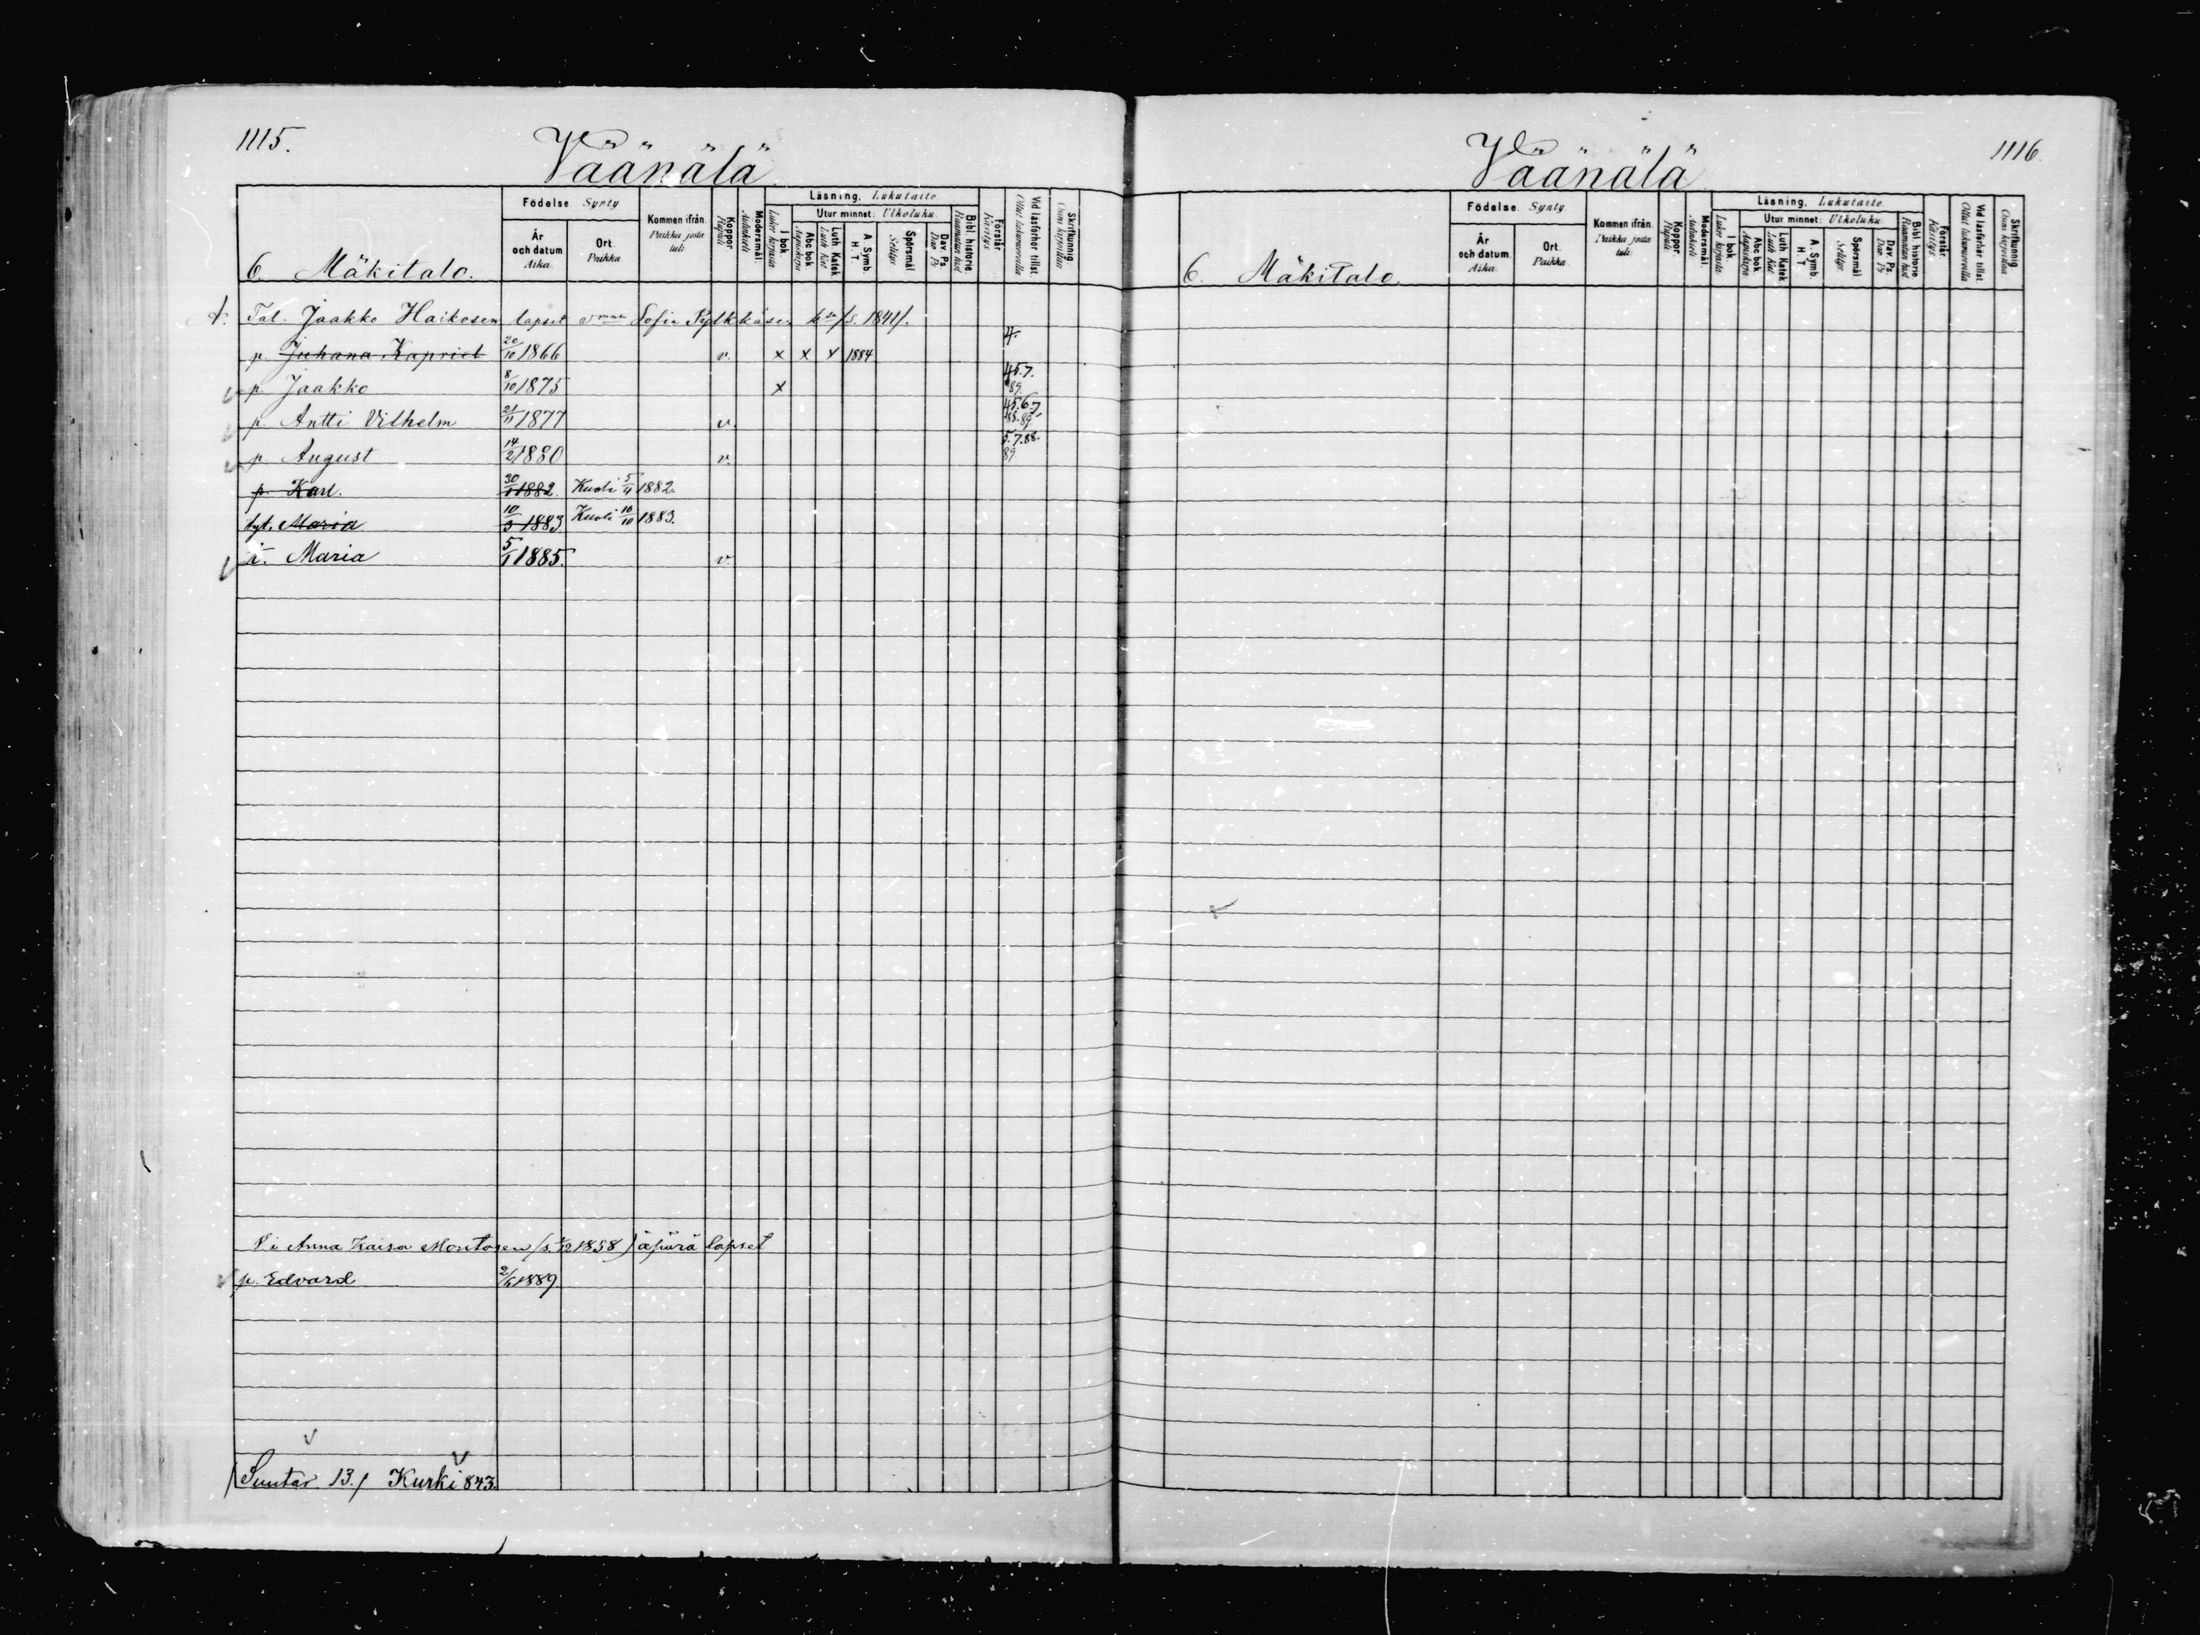 1115.
Väänälä
Födelse. Synty
År och datum Aika.
Ort. Paikka
Kommen ifrån. Paikka josta tuli
Koppor. Rupuli
Modersmål.
Läsning. Lukutaito.
I bok
Utur minnet: Ulkoluku.
Abc bok
Luth. Katek.
A. Symb. H. T.
Spörsmål Selitys
Dav. Ps.
Bibl. historie
Förstår. Käsitys
Vid läsförhör tillst.
Skriftkunnig
6. Mäkitalo.
Tal. Jaakko Haikosen lapset v mna Sofia Pylkkäsen ksa /s. 1841/.
p. Juhana Kapriel 20/10 1866 v. x x x 1884 4.
p. Jaakko 8/10 1875 x 4.5.7. 89.
p. Antti Vilhelm 21/11 1877 v. 4.5.6.7. 88.89.
p. August 14/2 1880 v. 5.7.88. 89
p. Karl. 30/1 1882. Kuoli 5/4 1882.
tyt. Maria 10/3 1883 Kuoli 16/10 1883.
t. Maria 5/1 1885. v.
Anna Kaisa Montosen 1858) äpärä lapset
p. Edvard 2/6 1889
/Suutar. 13./ Kurki 843.
1116.
Väänälä
Födelse. Synty
År och datum. Aika
Ort. Paikka
Kommen ifrån. Paikka josta tuli
Koppor. Rupuli
Modersmål.
Läsning. Lukutaito.
I bok
Utur minnet: Ulkoluku
Abc bok
Luth. Katek
A. Symb. H. T.
Spörsmål Selitys
Dav. Ps.
Bibl. historie
Förstår. Käsitys
Vid läsförhör tillst.
Skriftkunnig
6. Mäkitalo.